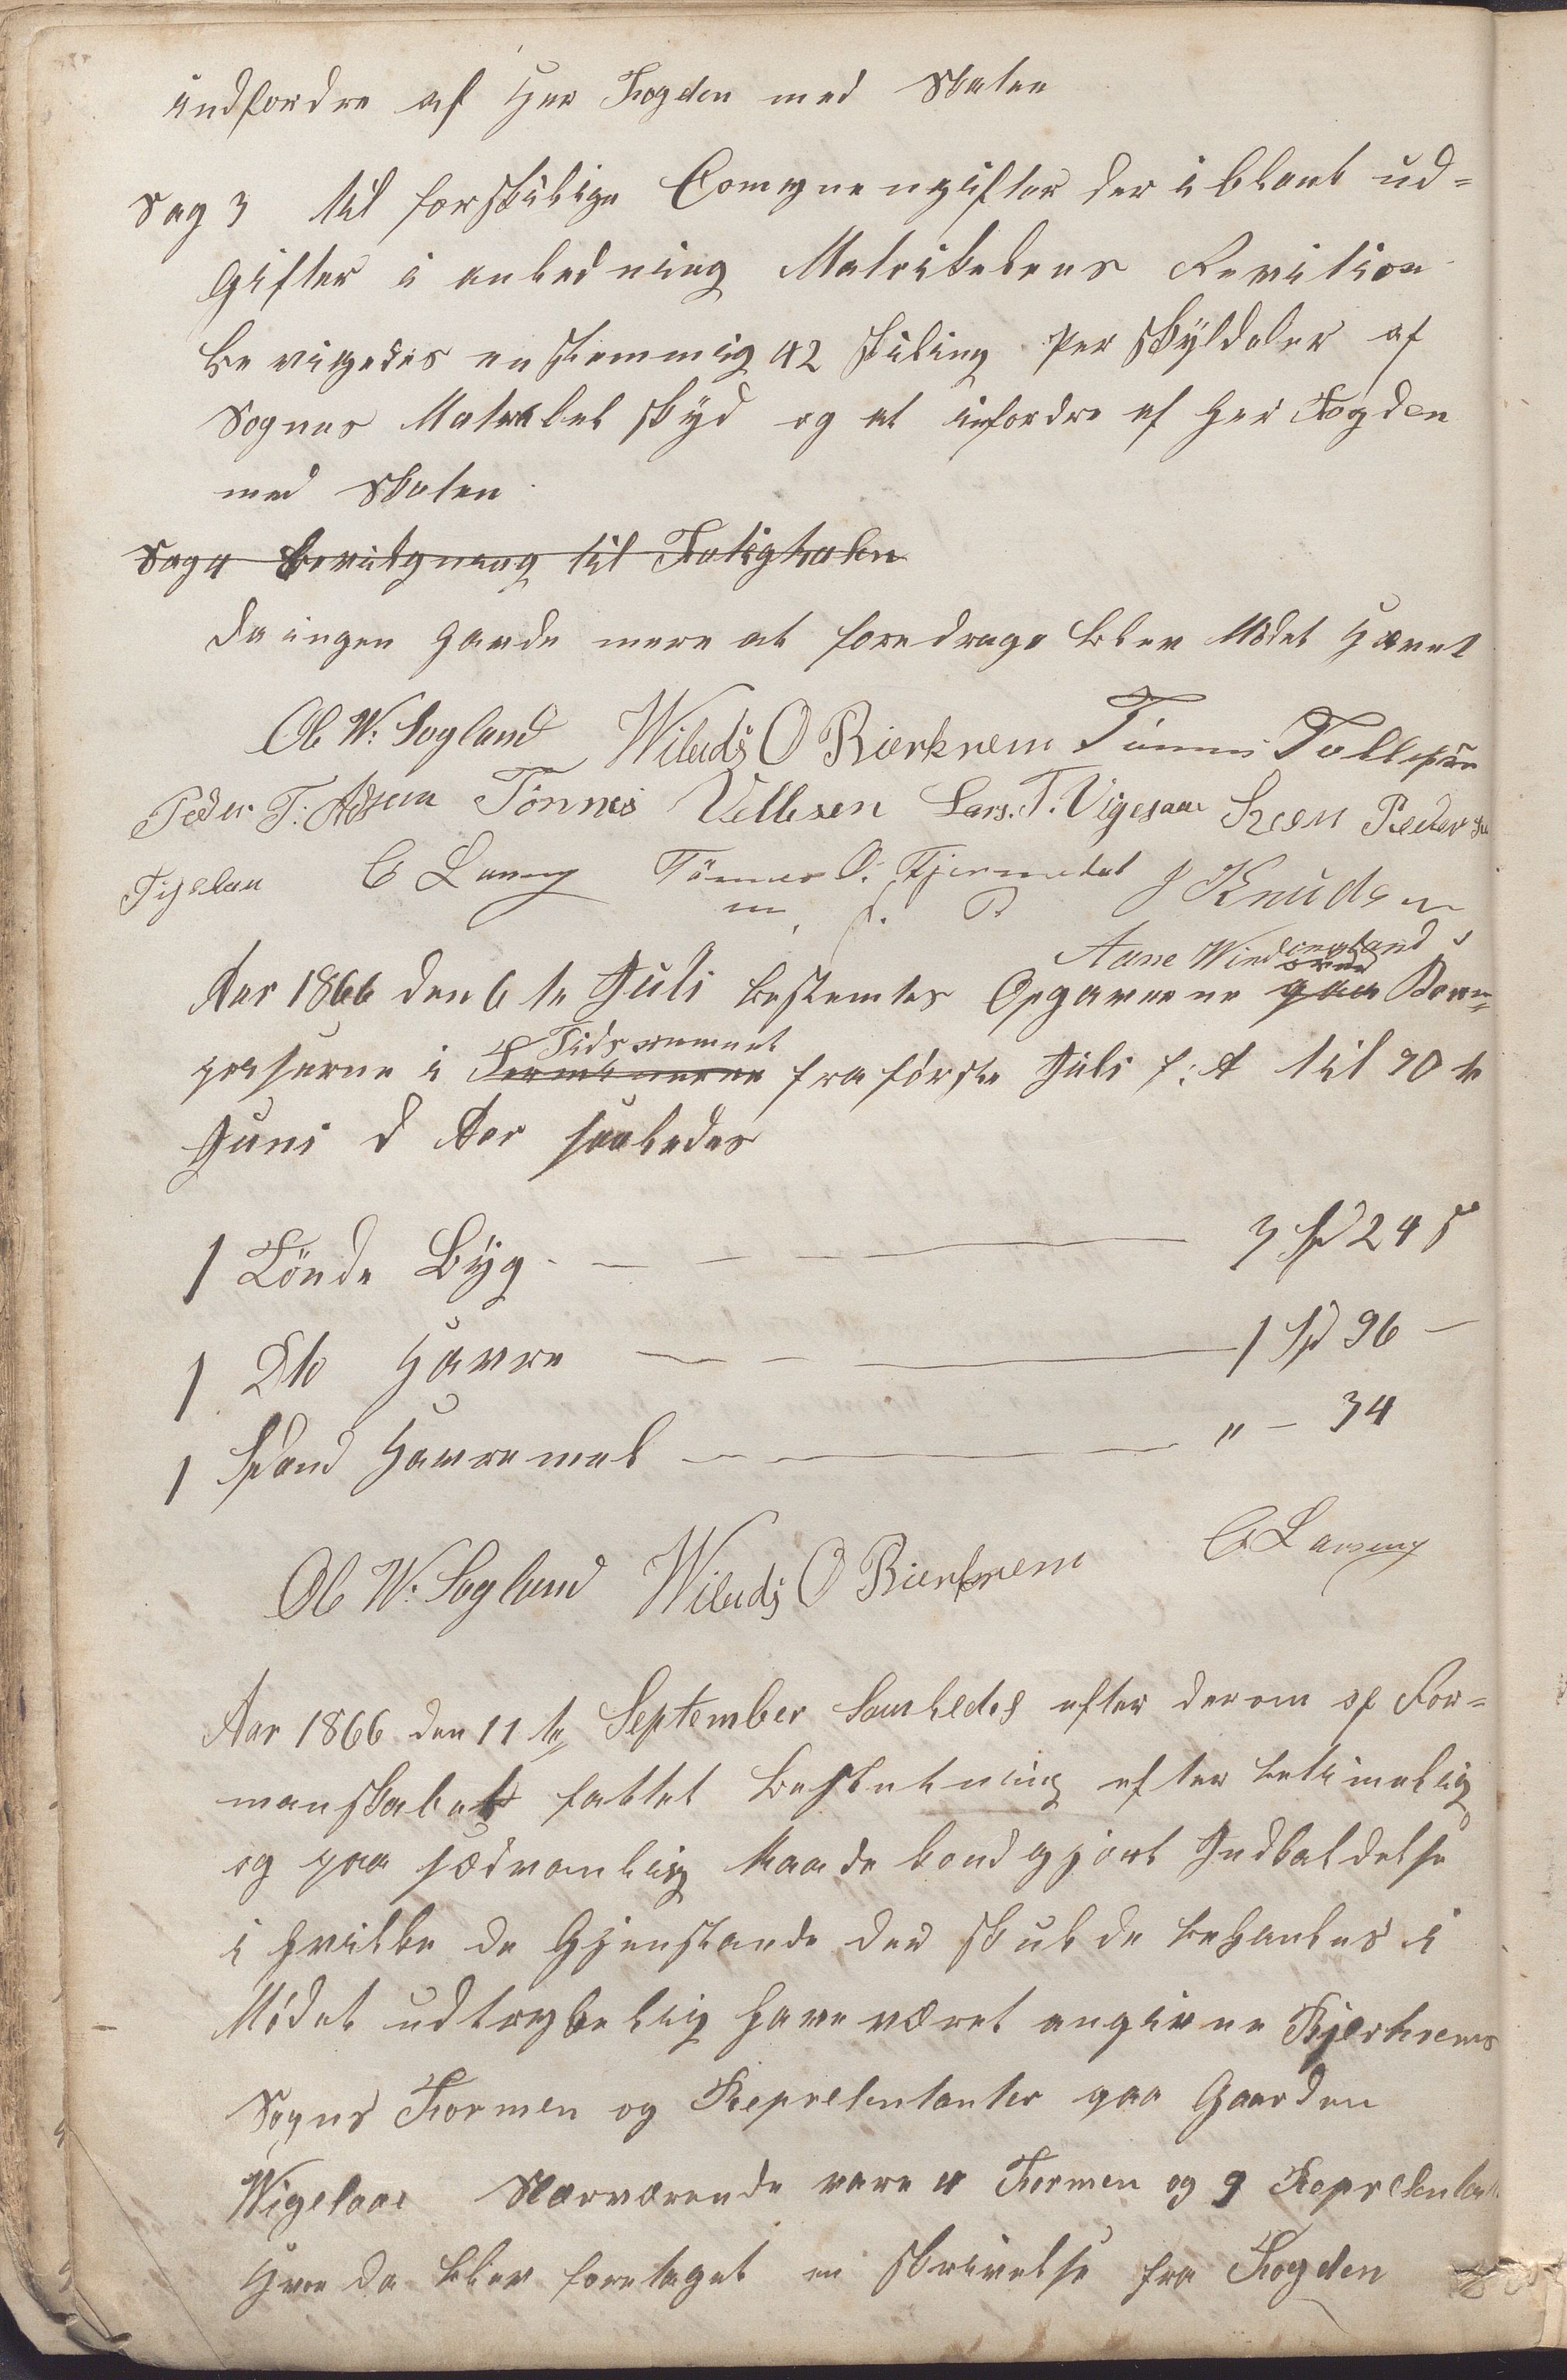 indfordre af Her Fogden med Skaten
Sag 3 til forskilige Comynengifter der i blant ud=
Gifter i anledning Matrikelens Revition
bevigedes enstemmig 42 skiling Per skyldaler af
Sognes Matrikel skyd og at infordre af Her Fogden
med Skaten
Sag 4 Bevilgning til Fatigkaken
Da ingen havde mere at foredrage blev Mödet Hævet
Ole W: Sogland Wilads O Bierkrem Tönnes Tollefsen
Peder T: Tönnes Vellesen Lars. T. Vigesaa Sven Pedersen
C Launy Tönnes O. J Knudsen
m. f. P.
Aane Windengland
Aar 1866 den 6 te Juli bestemtes Opgaverne over paa Korn-
Tidsrummet
priserne i Terminerne fra förste Juli f: A til 30 te
Juni d Aar saaledes
1 Tönde Byg - 3 Spd 24 s
1 Dto Havre - 1 Spd 96 -
1 Spand Havremel - " - 34
Ole W: Sogland Wilads O Bierkrem C Launy
Aar 1866 den 11 te September Samledes efter derom af For=
manskabet fattet Beslutning efter betimelig
og paa sædvanlig Maade kondgjort Indkaldelse
i hvilke de Gjenstande der skulde behanles i
Mödet udtrykelig have været angivne Bjerkrems
Sogns Formen og Repræsentanter paa Gaarden
Wigesaae Nærværende vare 4 Formen og 9 Repræsentan
Hvor da blev foretaget en skrivelse fra Fogden